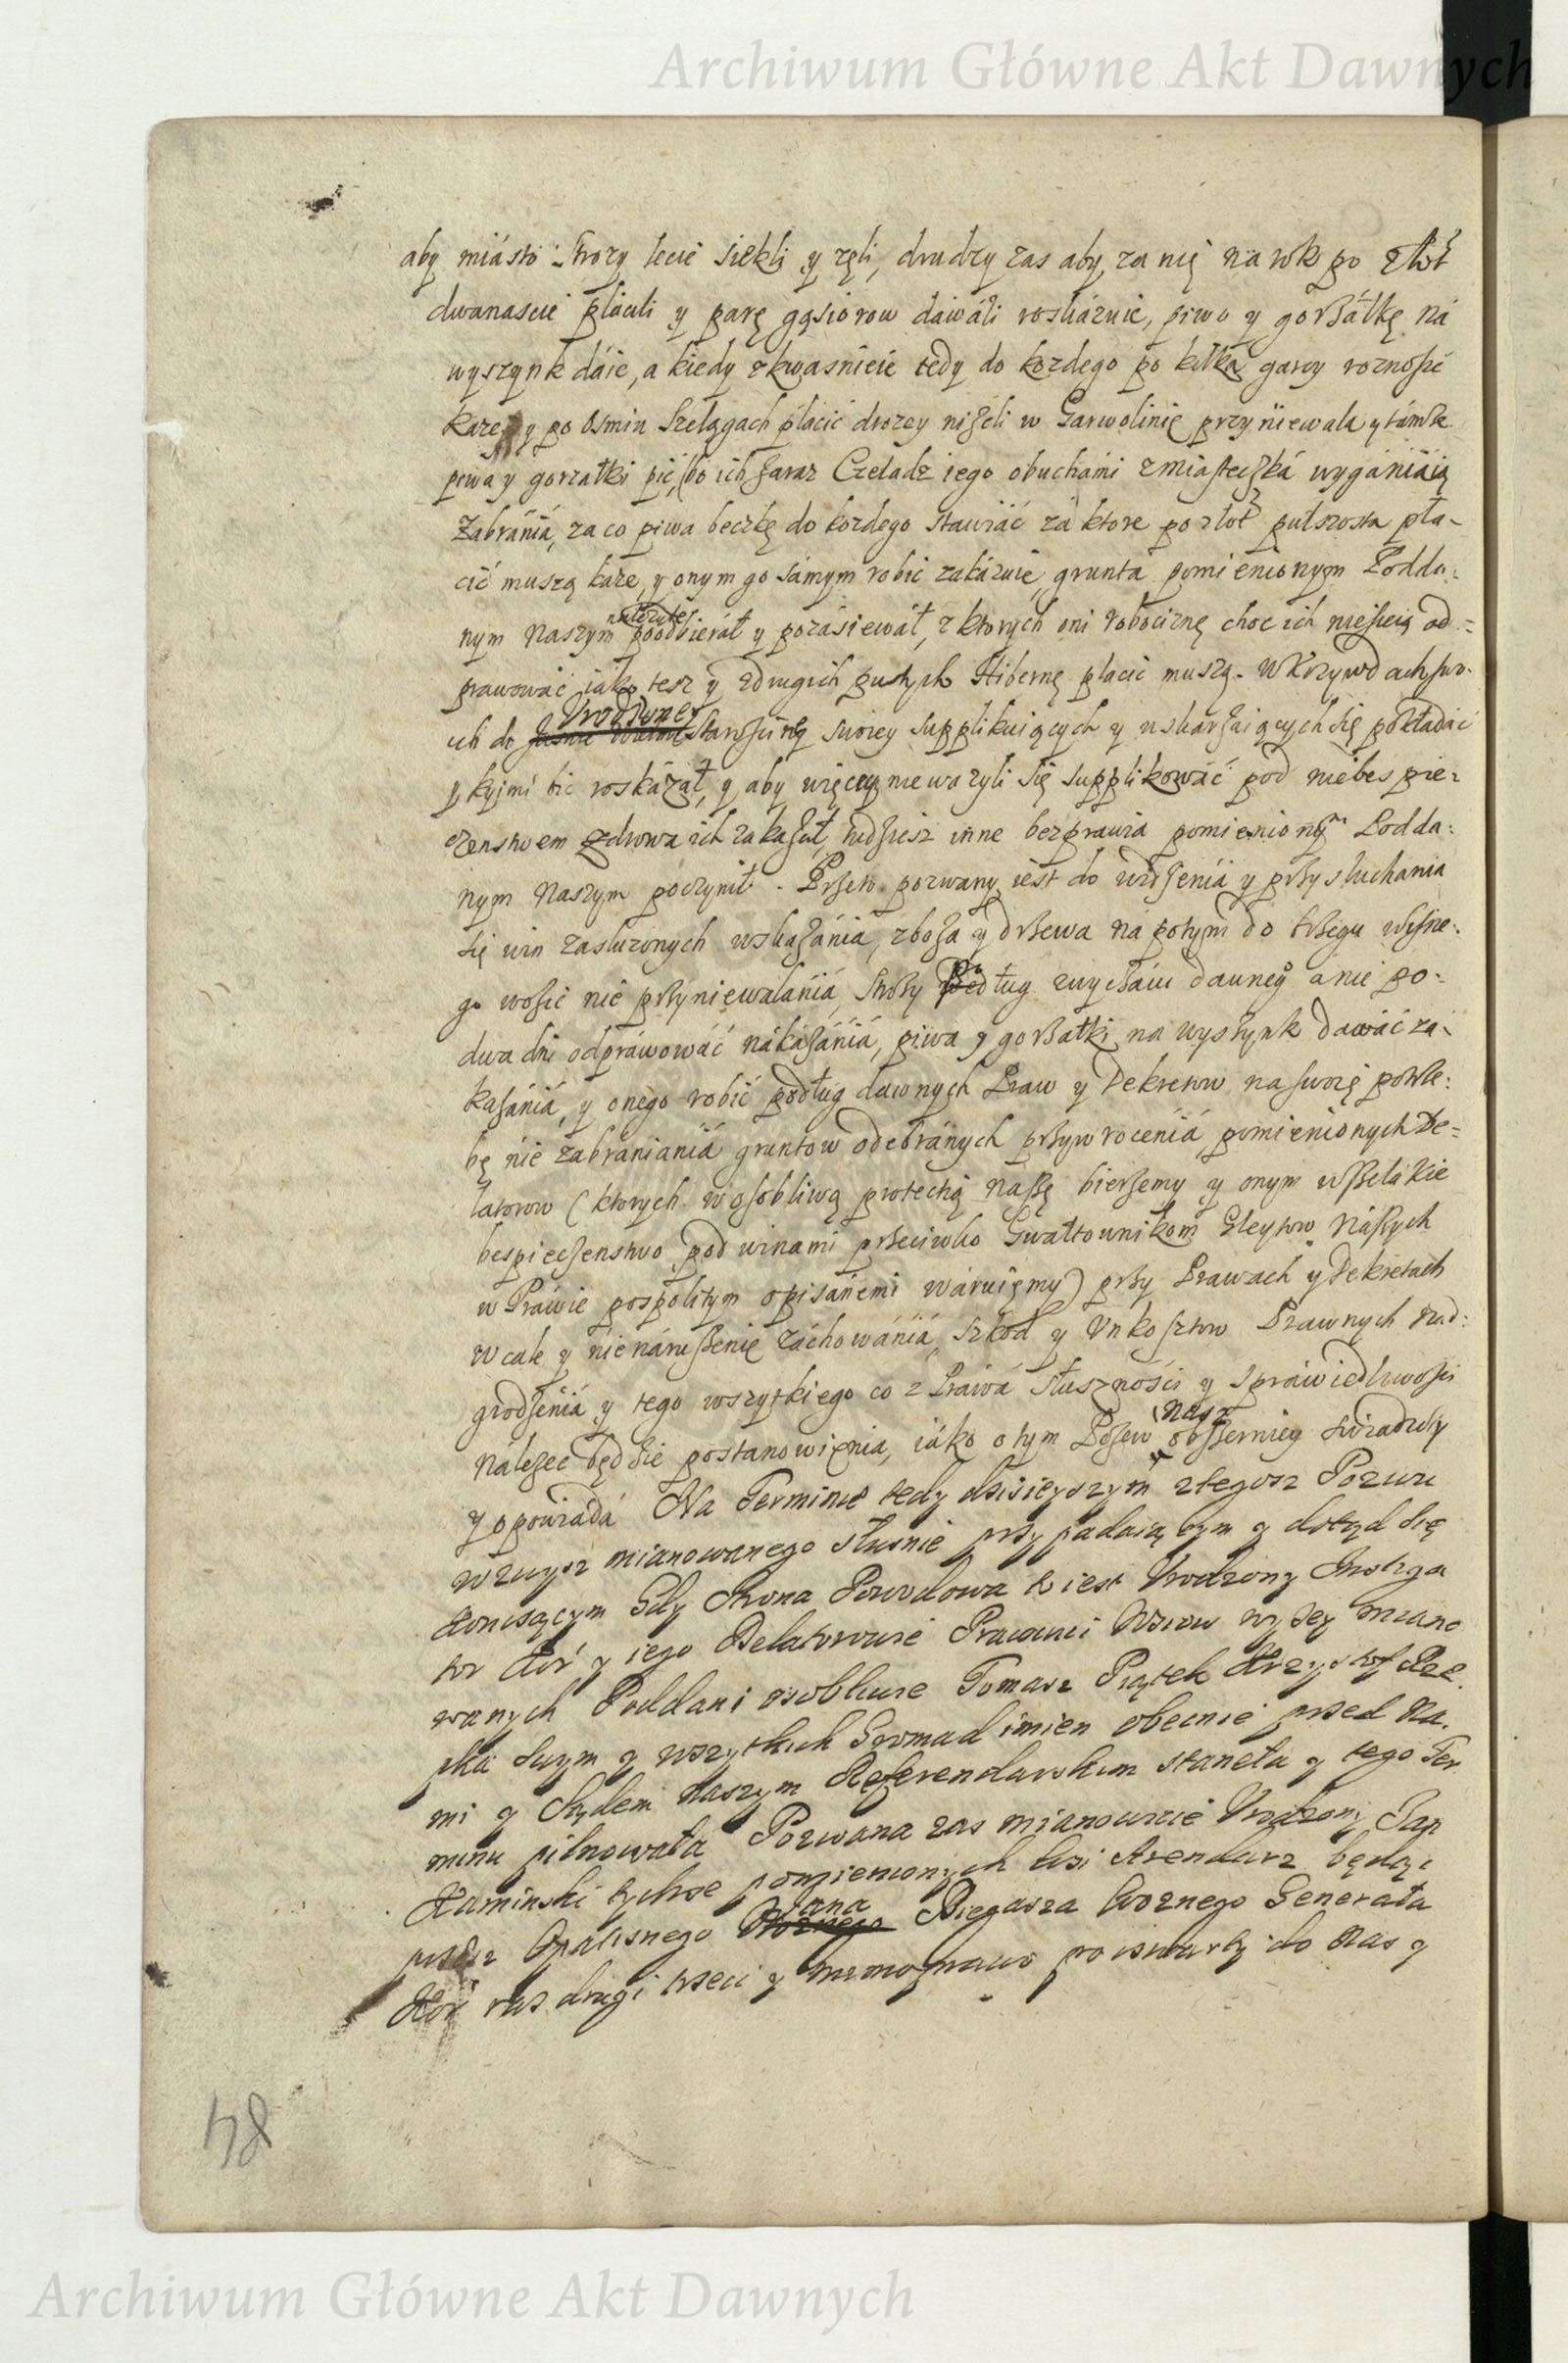 Archiwum Główne Akt Dawnych
aby miásto Strozy lecie siekli y zęli, drudzy zas aby za nię na rok po złot
dwanascie płacili y parę gąsiorow dawáli roskázuie, piwo y gorzáłkę ná
wyszynk dáie, a kiedy zkwasnieie tedy do kozdego po kilka garcy roznosić
kaze y po Osmiu Szelągach płacić drozey niżeli w Garwolinie przyniewala y támze
piwa y gorzałki pić, bo ich zaraz Czeladz iego obuchámi z miasteczká wyganiáią
Zabránia, za co piwa beczkę do kozdego stawiáć zá ktore po złot pułszosta pła-
cić muszą káze, y onym go sámym robić zakázuie, grunta pomienionym Podda:
nym Naszym należyte poodbierał y pozásiewał, z ktorych oni robociznę choc ich nie sieią od=
prawować iáko tesz y z drugich pustych Hibernę płacić muszą. W Krzywdach swo-
ich do Urodzoney Starosciny swoiey supplikuiących y uskarżaiących się pokładáć
y kyimi bić roskázał, y aby więcey nie wazyli się supplikowáć pod niebespie-
czenstwem zdrowia ich zakazał, tudziesz inne bezprawia pomienionym Podda:
nym Naszym poczynił. Przeto pozwany iest do widzenia y przysłuchania
się win zasłuzonych wskazánia, zboża y drzewa na potym do brzegu Wisne:
go wozić nie przyniewalániá, Strozy Podług zwyczáiu dawneg a nie po-
dwa dni odpráwowáć nákazániá, piwa y gorzałki na wyszynk dawáć zá-
kazániá, y onego robić podług dawnych Praw y Dekretow na swoię potrze:
bę nie zabrániániá gruntow odebránych przywroceniá, pomienionych De=
latorow (ktorych w osobliwą protectią naszę bierzemy y onym wszelákie
bespieczenstwo pod winami przeciwko Gwałtownikom Gleytow Nászych
w Práwie pospolitym opisánemi wáruiemy) przy Prawach y Dekretach
w cale y nienáruszenie záchowániá, Szkod y Unkosztow Prawnych nad:
grodzeniá y tego wszytkiego co z Práwá słusznośći y spráwiedliwosci
nálezec będzie postanowienia, iáko o tym Pozew Nasz obszerniey swiadczy
y opowiáda Na Terminie tedy dzisieyszym z tegosz Pozwu
wzwysz mianowanego słusnie przypadaiącym y dotąd się
toczącym Gdy Strona Powodowa to iest Urodzony Instiga
tor Kor y iego Delatorowie Pracowici Wsiow wyżey miano
wanych Poddani osobliwie Tomasz Piątek Krzysztof Rze
pka swym y wszytkich Gromad imien obecnie przed Na:
mi y Sądem naszym Referendarskim staneła y tego Ter
minu pilnowała Pozwana zas mianowicie Urodzony Pan
Kaminski tychze pomienionych Wsi Arendarz będąc
przez Opatrznego Jana Biegasza Woznego Generała
Kor raz drugi trzeci y nad prawo po czwarty do Nas y
84
Archiwum Główne Akt Dawnych